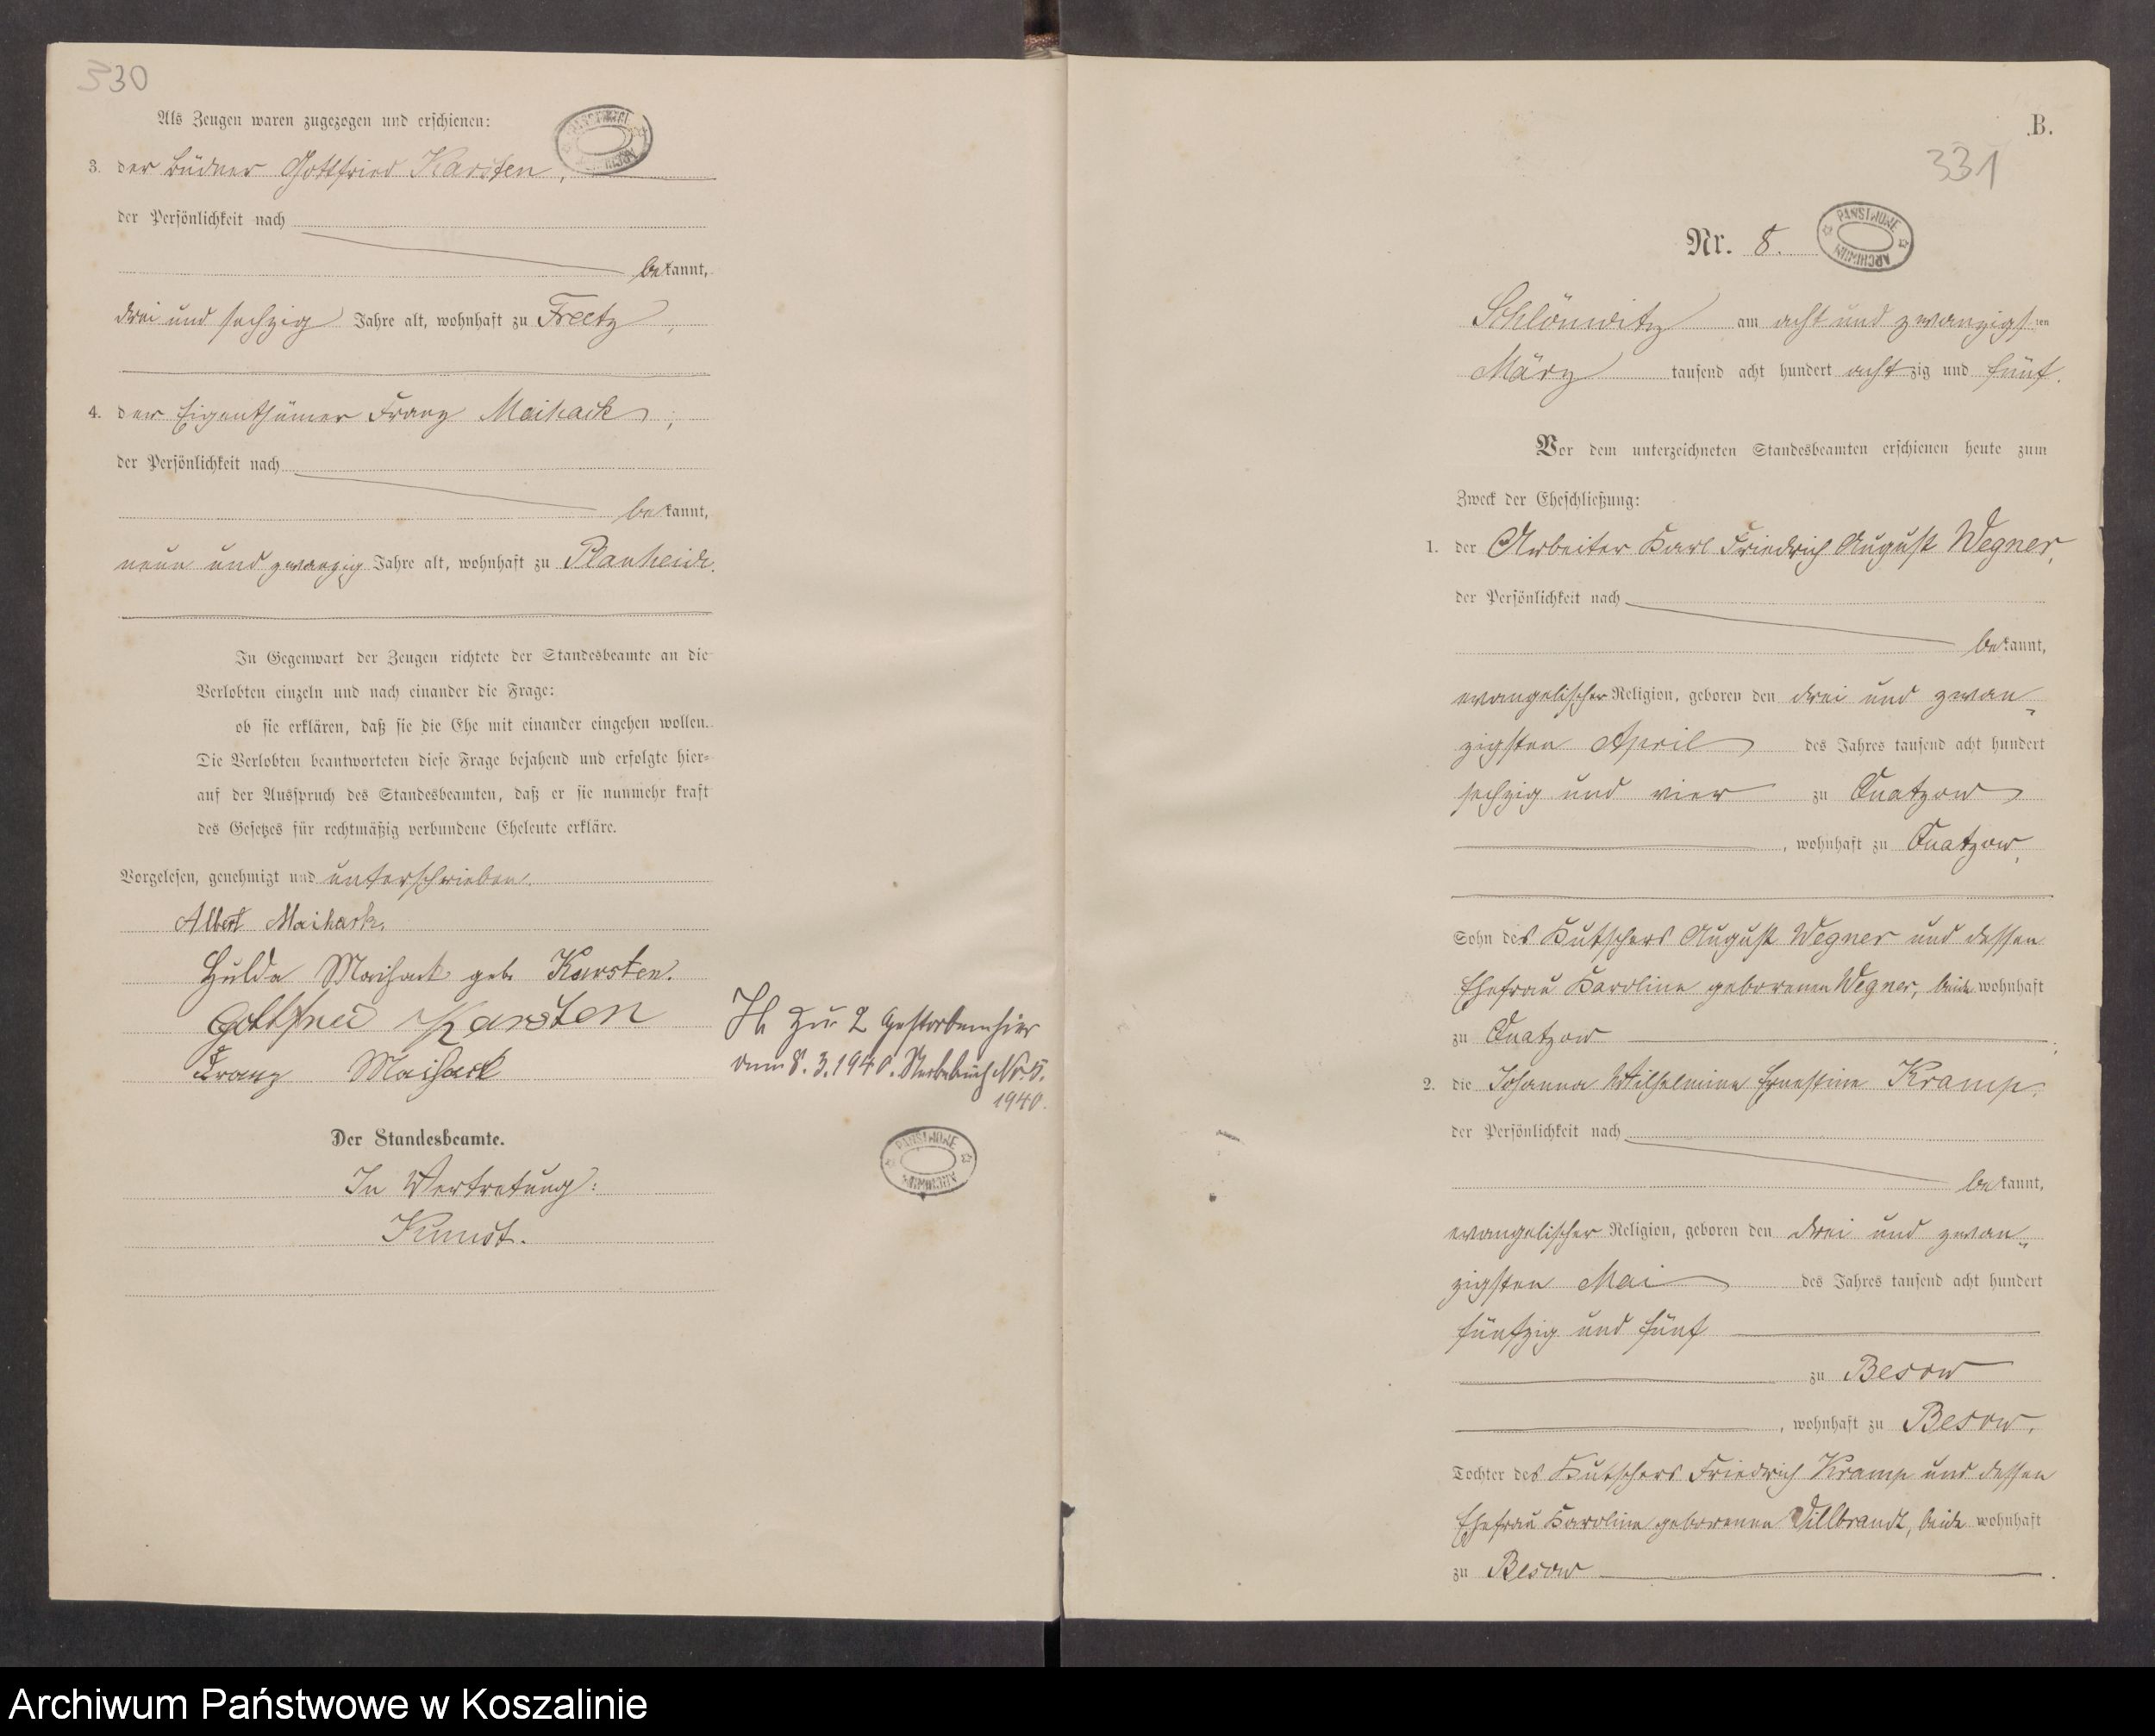 330
Als Zeugen waren zugezogen und erschienen:
3. der Büdner Gottfried Karsten,
der Persönlichkeit nach
bekannt,
drei und sechzig Jahre alt, wohnhaft zu Freetz,
4. der Eigenthümer Franz Maihack,
der Persönlichkeit nach
bekannt,
neun und zwanzig Jahre alt, wohnhaft zu Planheide.
In Gegenwart der Zeugen richtete der Standesbeamte an die
Verlobten einzeln und nach einander die Frage:
ob sie erklären, daß sie die Ehe mit einander eingehen wollen.
Die Verlobten beantworteten diese Frage bejahend und erfolgte hier-
auf der Ausspruch des Standesbeamten, daß er sie nunmehr kraft
des Gesetzes für rechtmäßig verbundene Eheleute erkläre.
Vorgelesen, genehmigt und unterschrieben.
Albert Maihack.
Hulda Maihack geb. Karsten.
Gottfried Karsten
Franz Maihack
Der Standesbeamte.
In Vertretung:
Kunst.
zu 2 gestorben hier
am 8.3.1940. Sterbebuch Nr. 5.
1940.
PAŃSTWOWE ARCHIWUM
B.
331
Nr. 8.
PAŃSTWOWE ARCHIWUM
Schlönwitz am acht und zwanzigsten
März tausend acht hundert achtzig und fünf.
Vor dem unterzeichneten Standesbeamten erschienen heute zum
Zweck der Eheschließung:
1. der Arbeiter Karl Friedrich August Wegner,
der Persönlichkeit nach
bekannt,
evangelischer Religion, geboren den drei und zwan-
zigsten April des Jahres tausend acht hundert
sechzig und vier zu Quatzow
, wohnhaft zu Quatzow,
Sohn des Kutschers August Wegner und dessen
Ehefrau Karoline geborenen Wegner, beide wohnhaft
zu Quatzow
2. die Johanna Wilhelmine Ernestine Kramp,
der Persönlichkeit nach
bekannt,
evangelischer Religion, geboren den drei und zwan-
zigsten Mai des Jahres tausend acht hundert
fünfzig und fünf
zu Besow
, wohnhaft zu Besow,
Tochter des Kutschers Friedrich Kramp und dessen
Ehefrau Karoline geborenen Villbrandt, beide wohnhaft
zu Besow
Archiwum Państwowe w Koszalinie